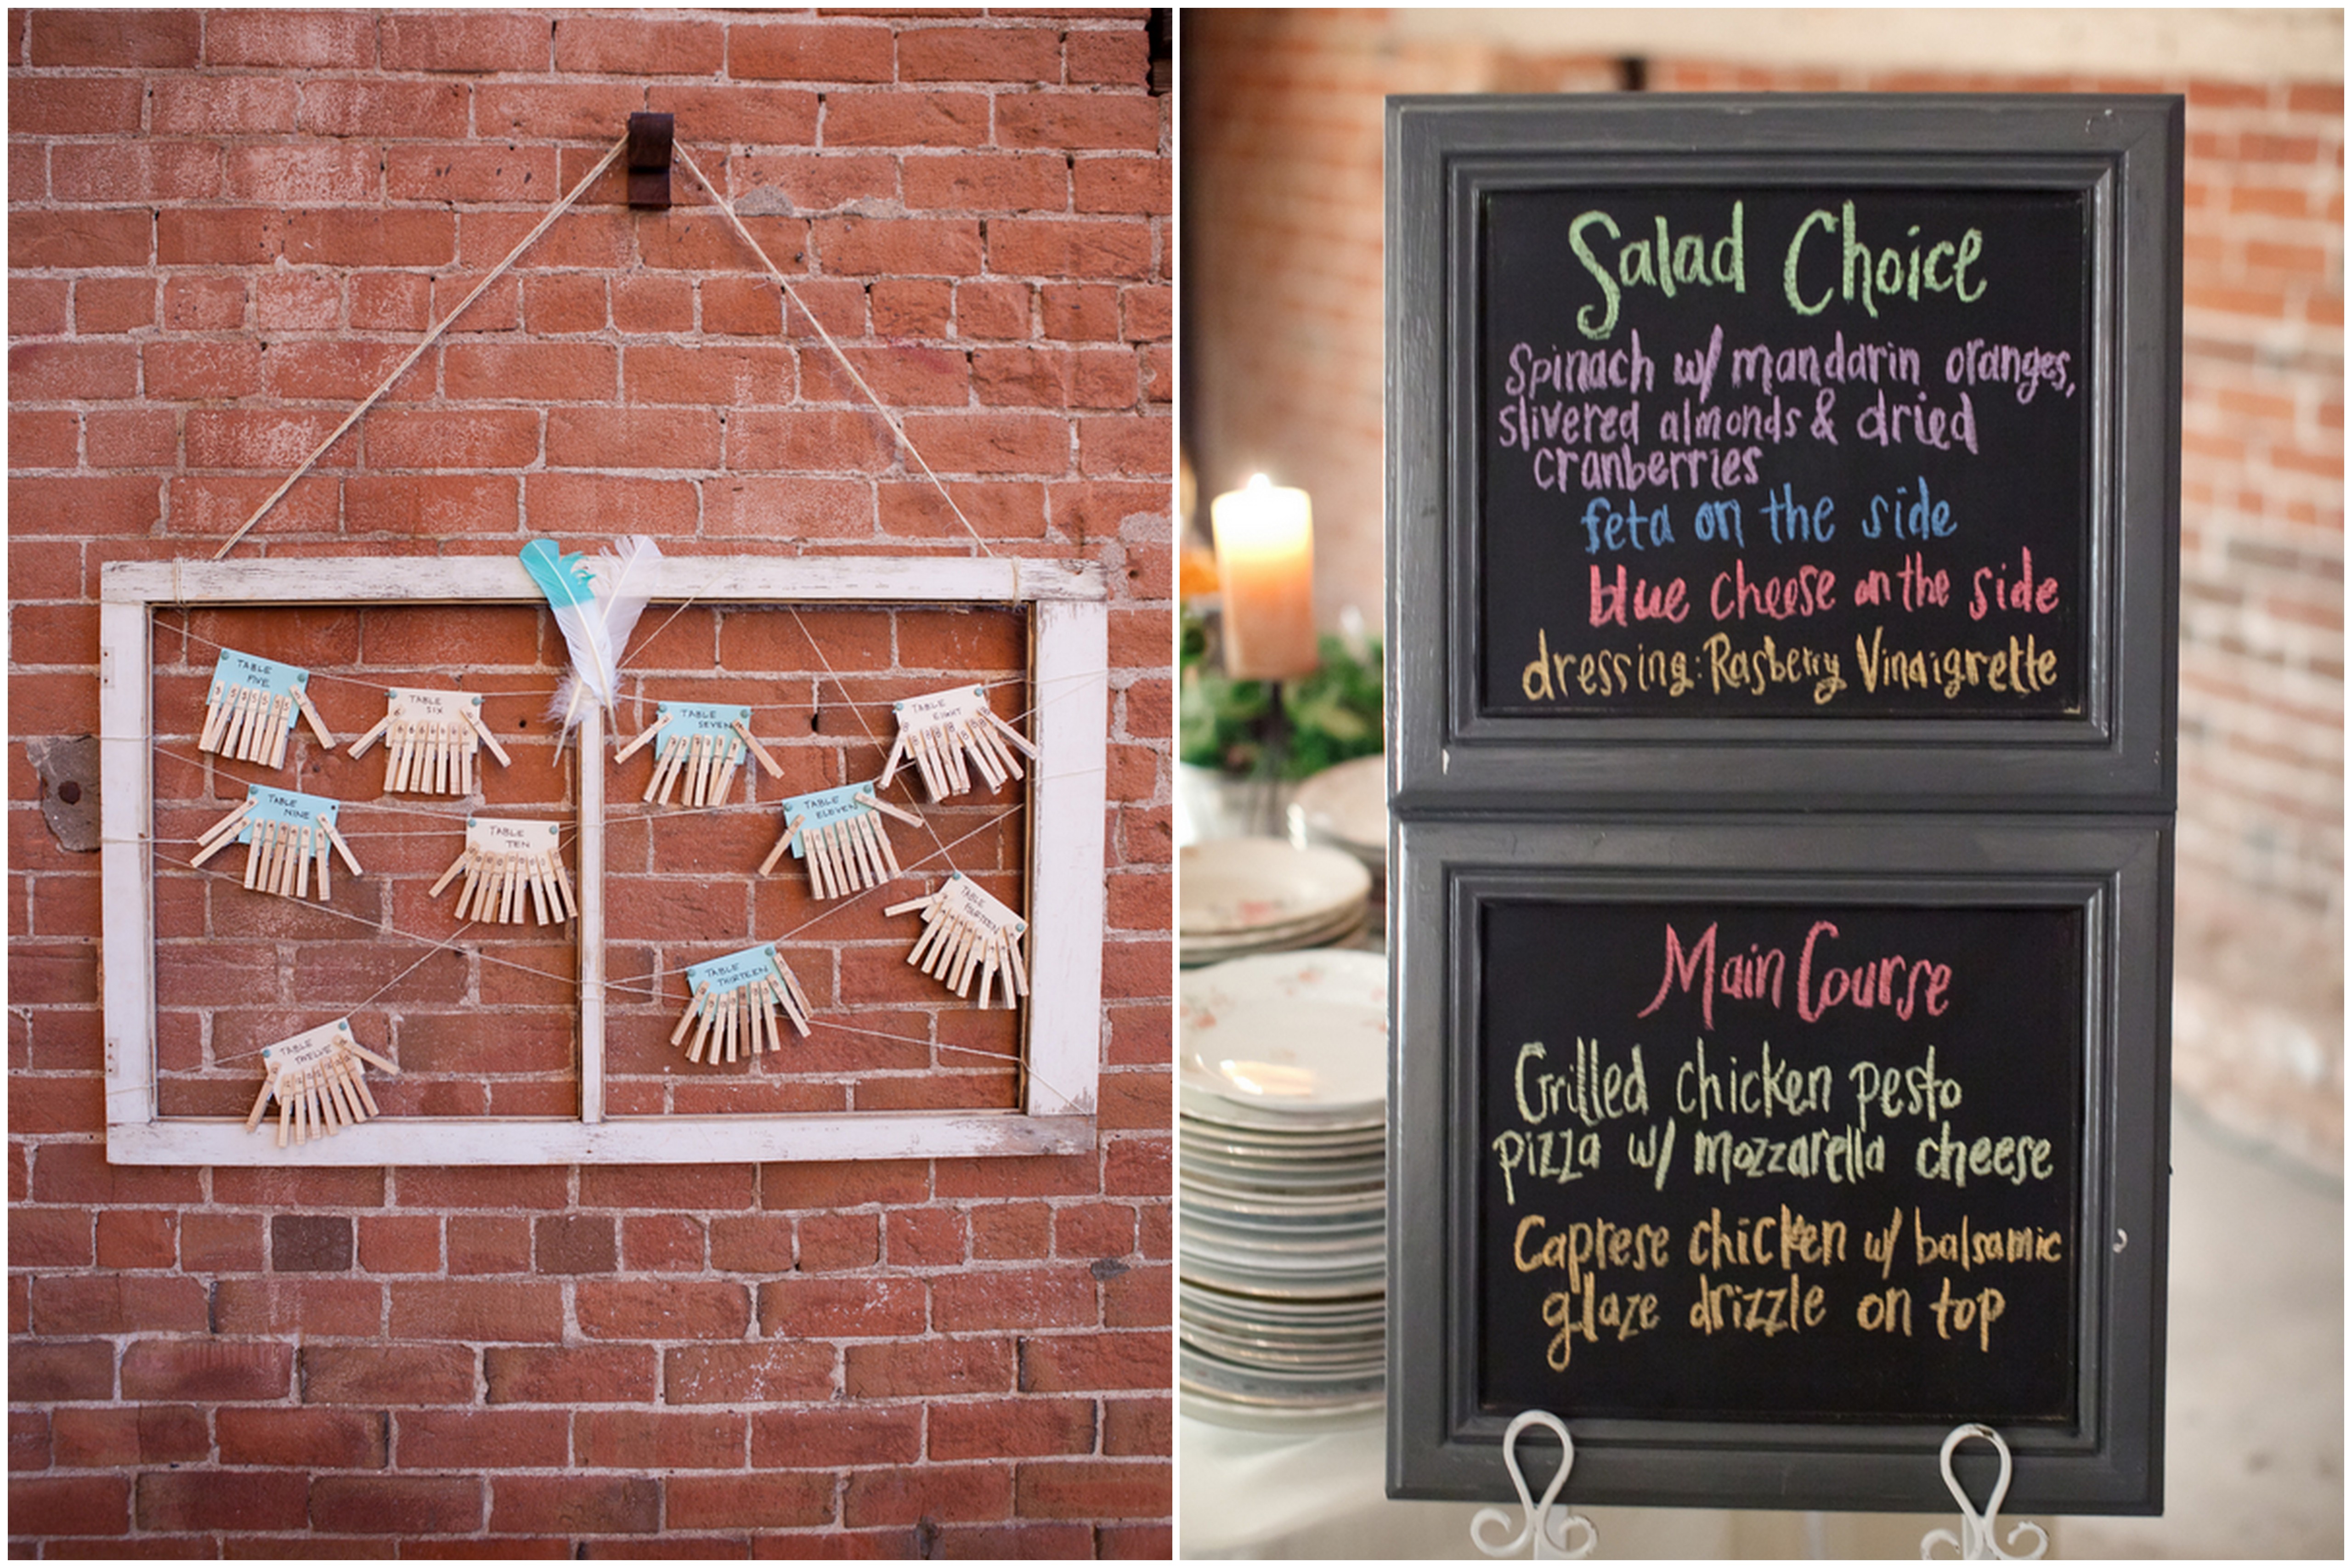 TABLE
FIVE
5 5 5 5 5 5
TABLE
SIX
6 6 6 6 6
TABLE
SEVEN
TABLE
EIGHT
8 8 8 8 8 8
TABLE
NINE
TABLE
TEN
TABLE
ELEVEN
TABLE
FOURTEEN
TABLE
THIRTEEN
TABLE
TWELVE
Salad Choice
Spinach w/ mandarin oranges,
slivered almonds & dried
cranberries
feta on the side
blue cheese on the side
dressing: Rasberry Vinaigrette
Main Course
Grilled chicken pesto
pizza w/ mozzarella cheese
Caprese chicken w/ balsamic
glaze drizzle on top